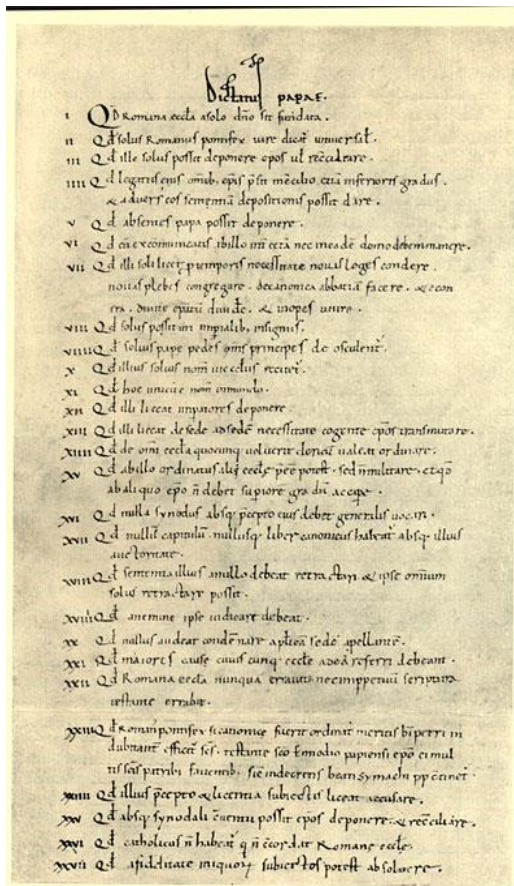 Dictatus papae.
I QD Romana eccła a solo dño sit fundata.
II Qđ solus Romanus pontifex iure dicat̃ universał.
III Qđ ille solus possit deponere epõs uł recõciliare.
IIII Qđ legatus eius omĩb; epĩs p̃sit in cõcilio etiã inferioris gradus.
& adversus eos sententiã depositionis possit dare.
V Qđ absentes papa possit deponere.
VI Qđ cũ excõmunicatis ab illo int̃ cetã nec in eadẽ domo debem̃ manere.
VII Qđ illi soli licet p̃ temporis necessitate novas leges condere
novas plebes congregare. de canonica abbatiã facere. & econ
tra. divitẽ epatũ diuiđe. & inopes unire.
VIII Qđ solus possit uti imp̃ialib; insigniis.
VIIII Qđ solius pape pedes õms principes deosculent̃.
X Qđ illius solius nom̃ in eccłis recitet̃.
XI Qđ hoc unicũ ẽ nom̃ in mundo.
XII Qđ illi liceat imp̃atores deponere
XIII Qđ illi liceat de sede ad sedẽ necessitate cogente epõs transmutare.
XIIII Qđ de om̃i eccła quocunq; uoluerit clericũ ualeat ordinare.
XV Qđ ab illo ordinatus alii eccłe p̃eẽ potest. sed ñ militare. et qđ
ab aliquo epõ ñ debet sup̃iorẽ gradũ accip̃e.
XVI Qđ nulla synodus absq; p̃cepto eius debet generalis uocari.
XVII Qđ nullũ capitulũ. nullusq; liber canonicus habeat̃ absq; illius
auctoritate.
XVIII Qđ sententia illius a nullo debeat retractari. & ipse omnium
solus retractare possit.
XVIIII Qđ a nemine ipse iudicari debeat.
XX Qđ nullus audeat condẽnare ap̃licã sedẽ apellantẽ.
XXI Qđ maiores cause cuiuscunq; eccłe ad eã referri debeant.
XXII Qđ Romana eccła nunquã errauit. nec imppetuũ scriptura
testante errabit.
XXIII Qđ Roman̾ pontifex si canonice fuerit ordinat̾ meritis b̃i petri in
dubitant̃ efficit̃ scs. testante sc̃o Ennodio papiensi epõ ei mul
tis scĩs patrib; fauentib; sic̃ in decretis beati symachi pp̃ cõtinet̃.
XXIIII Qđ illius p̃cepto & licentia subiectis liceat accusare.
XXV Qđ absq; synodali cõuentu possit epõs deponere. & recõciliare.
XXVI Qđ catholicus ñ habeat̃ q ñ cõcordat Romane eccłe.
XXVII Qđ a fidelitate iniquorũ subiectos potest absoluere.